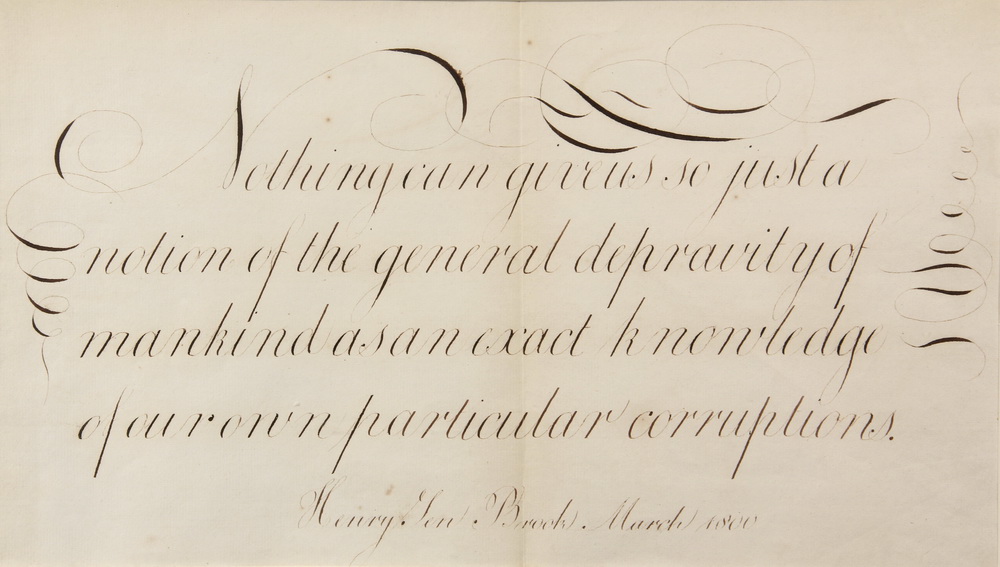 Nothing can give us so just a
notion of the general depravity of
mankind as an exact knowledge
of our own particular corruptions.
Henry Brook March 1800